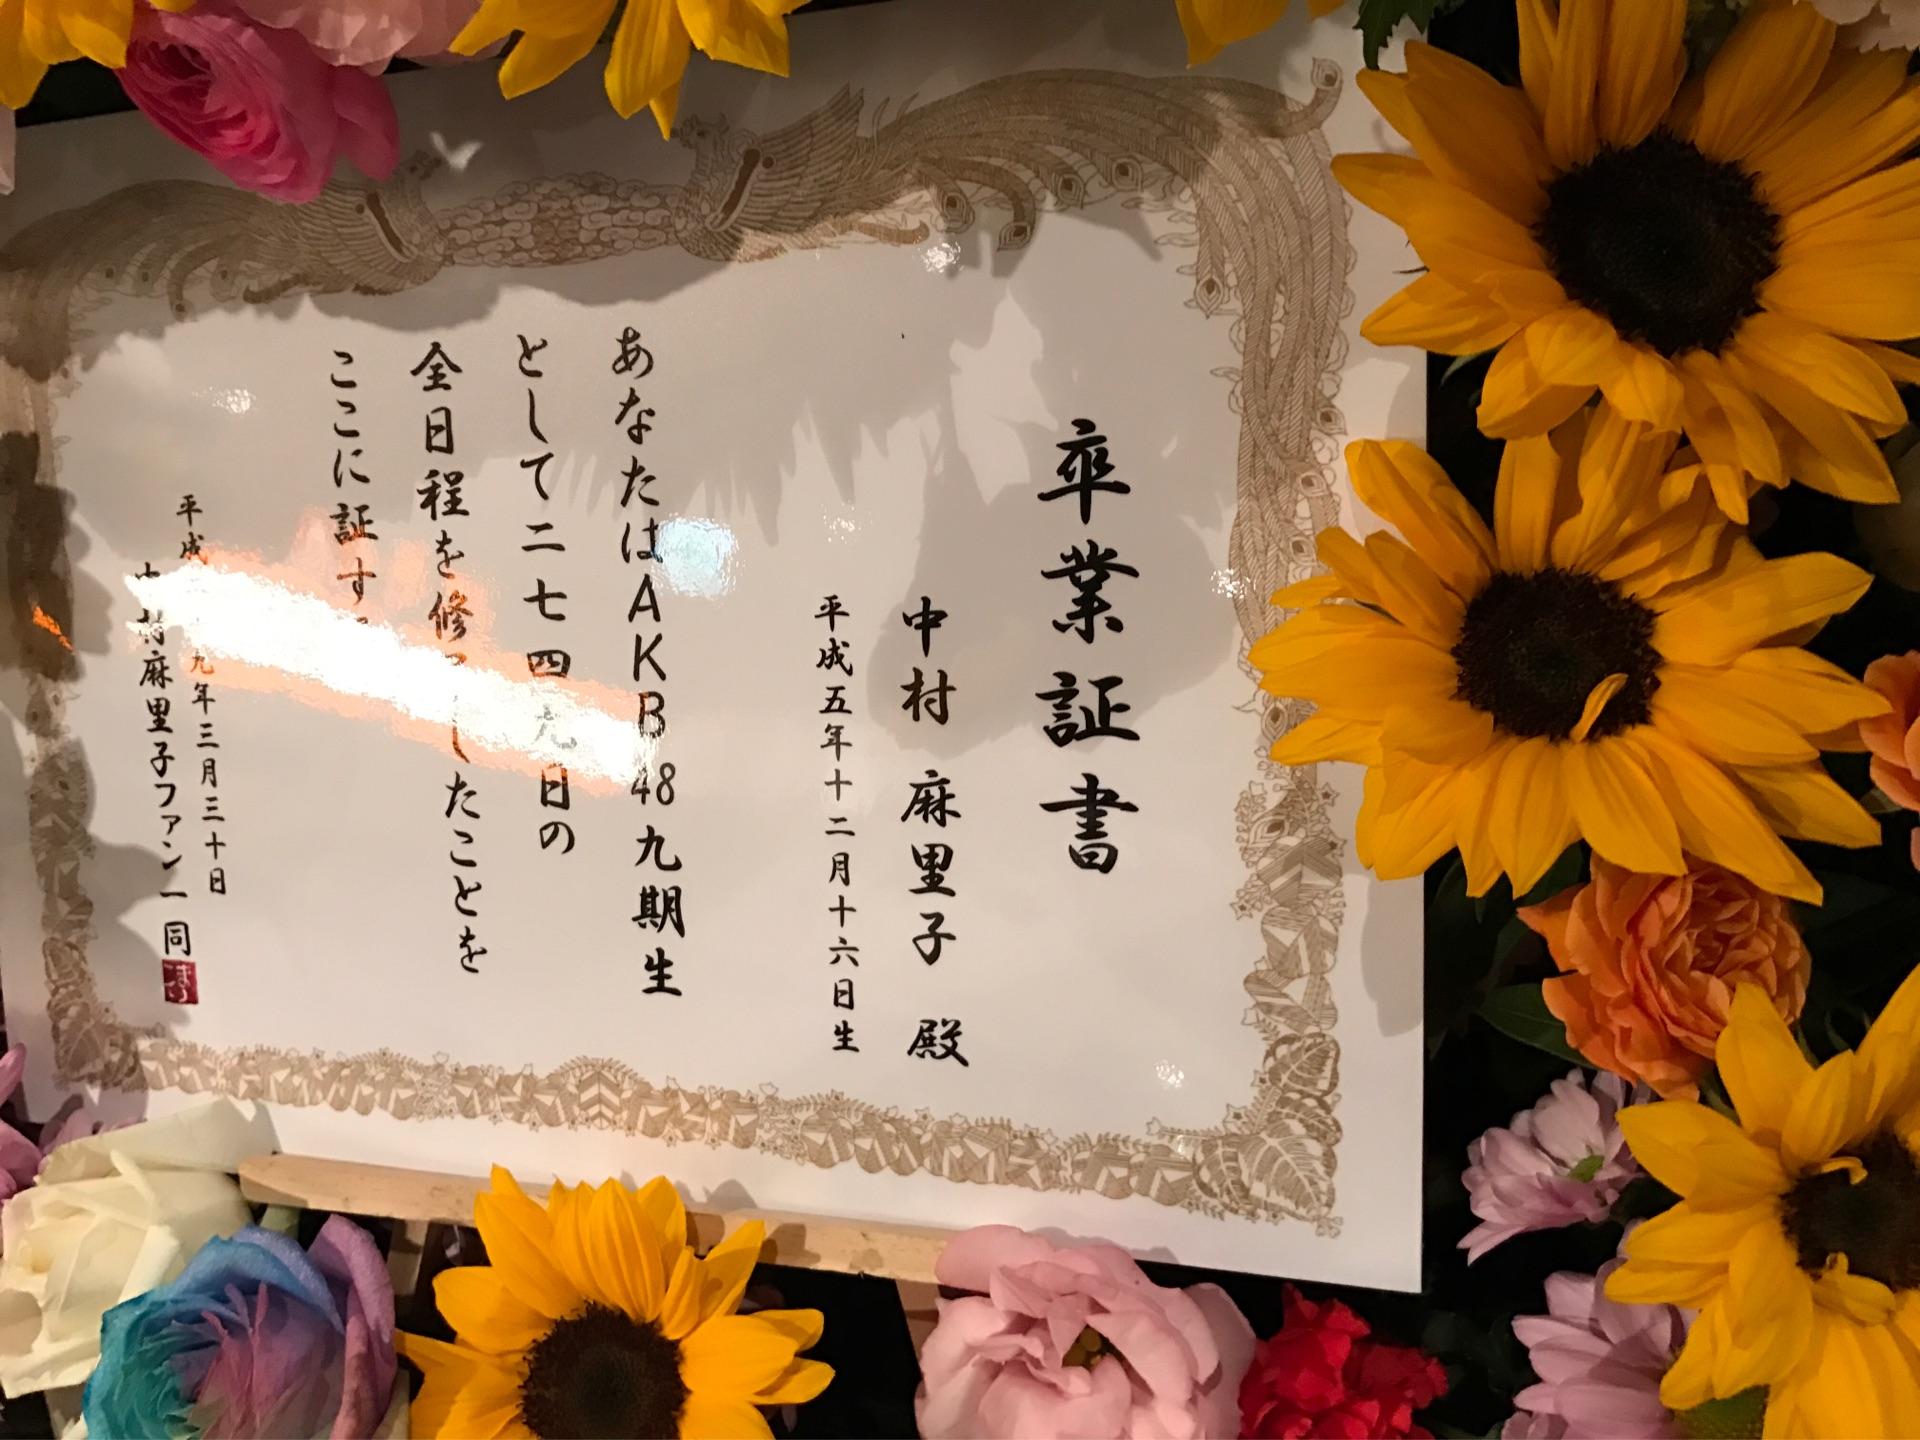 卒業証書
中村 麻里子 殿
平成五年十二月十六日生
あなたはAKB48九期生
として二七四九日の
全日程を修 したことを
ここに証す
平成 九年三月三十日
中村麻里子ファン一同
こまり